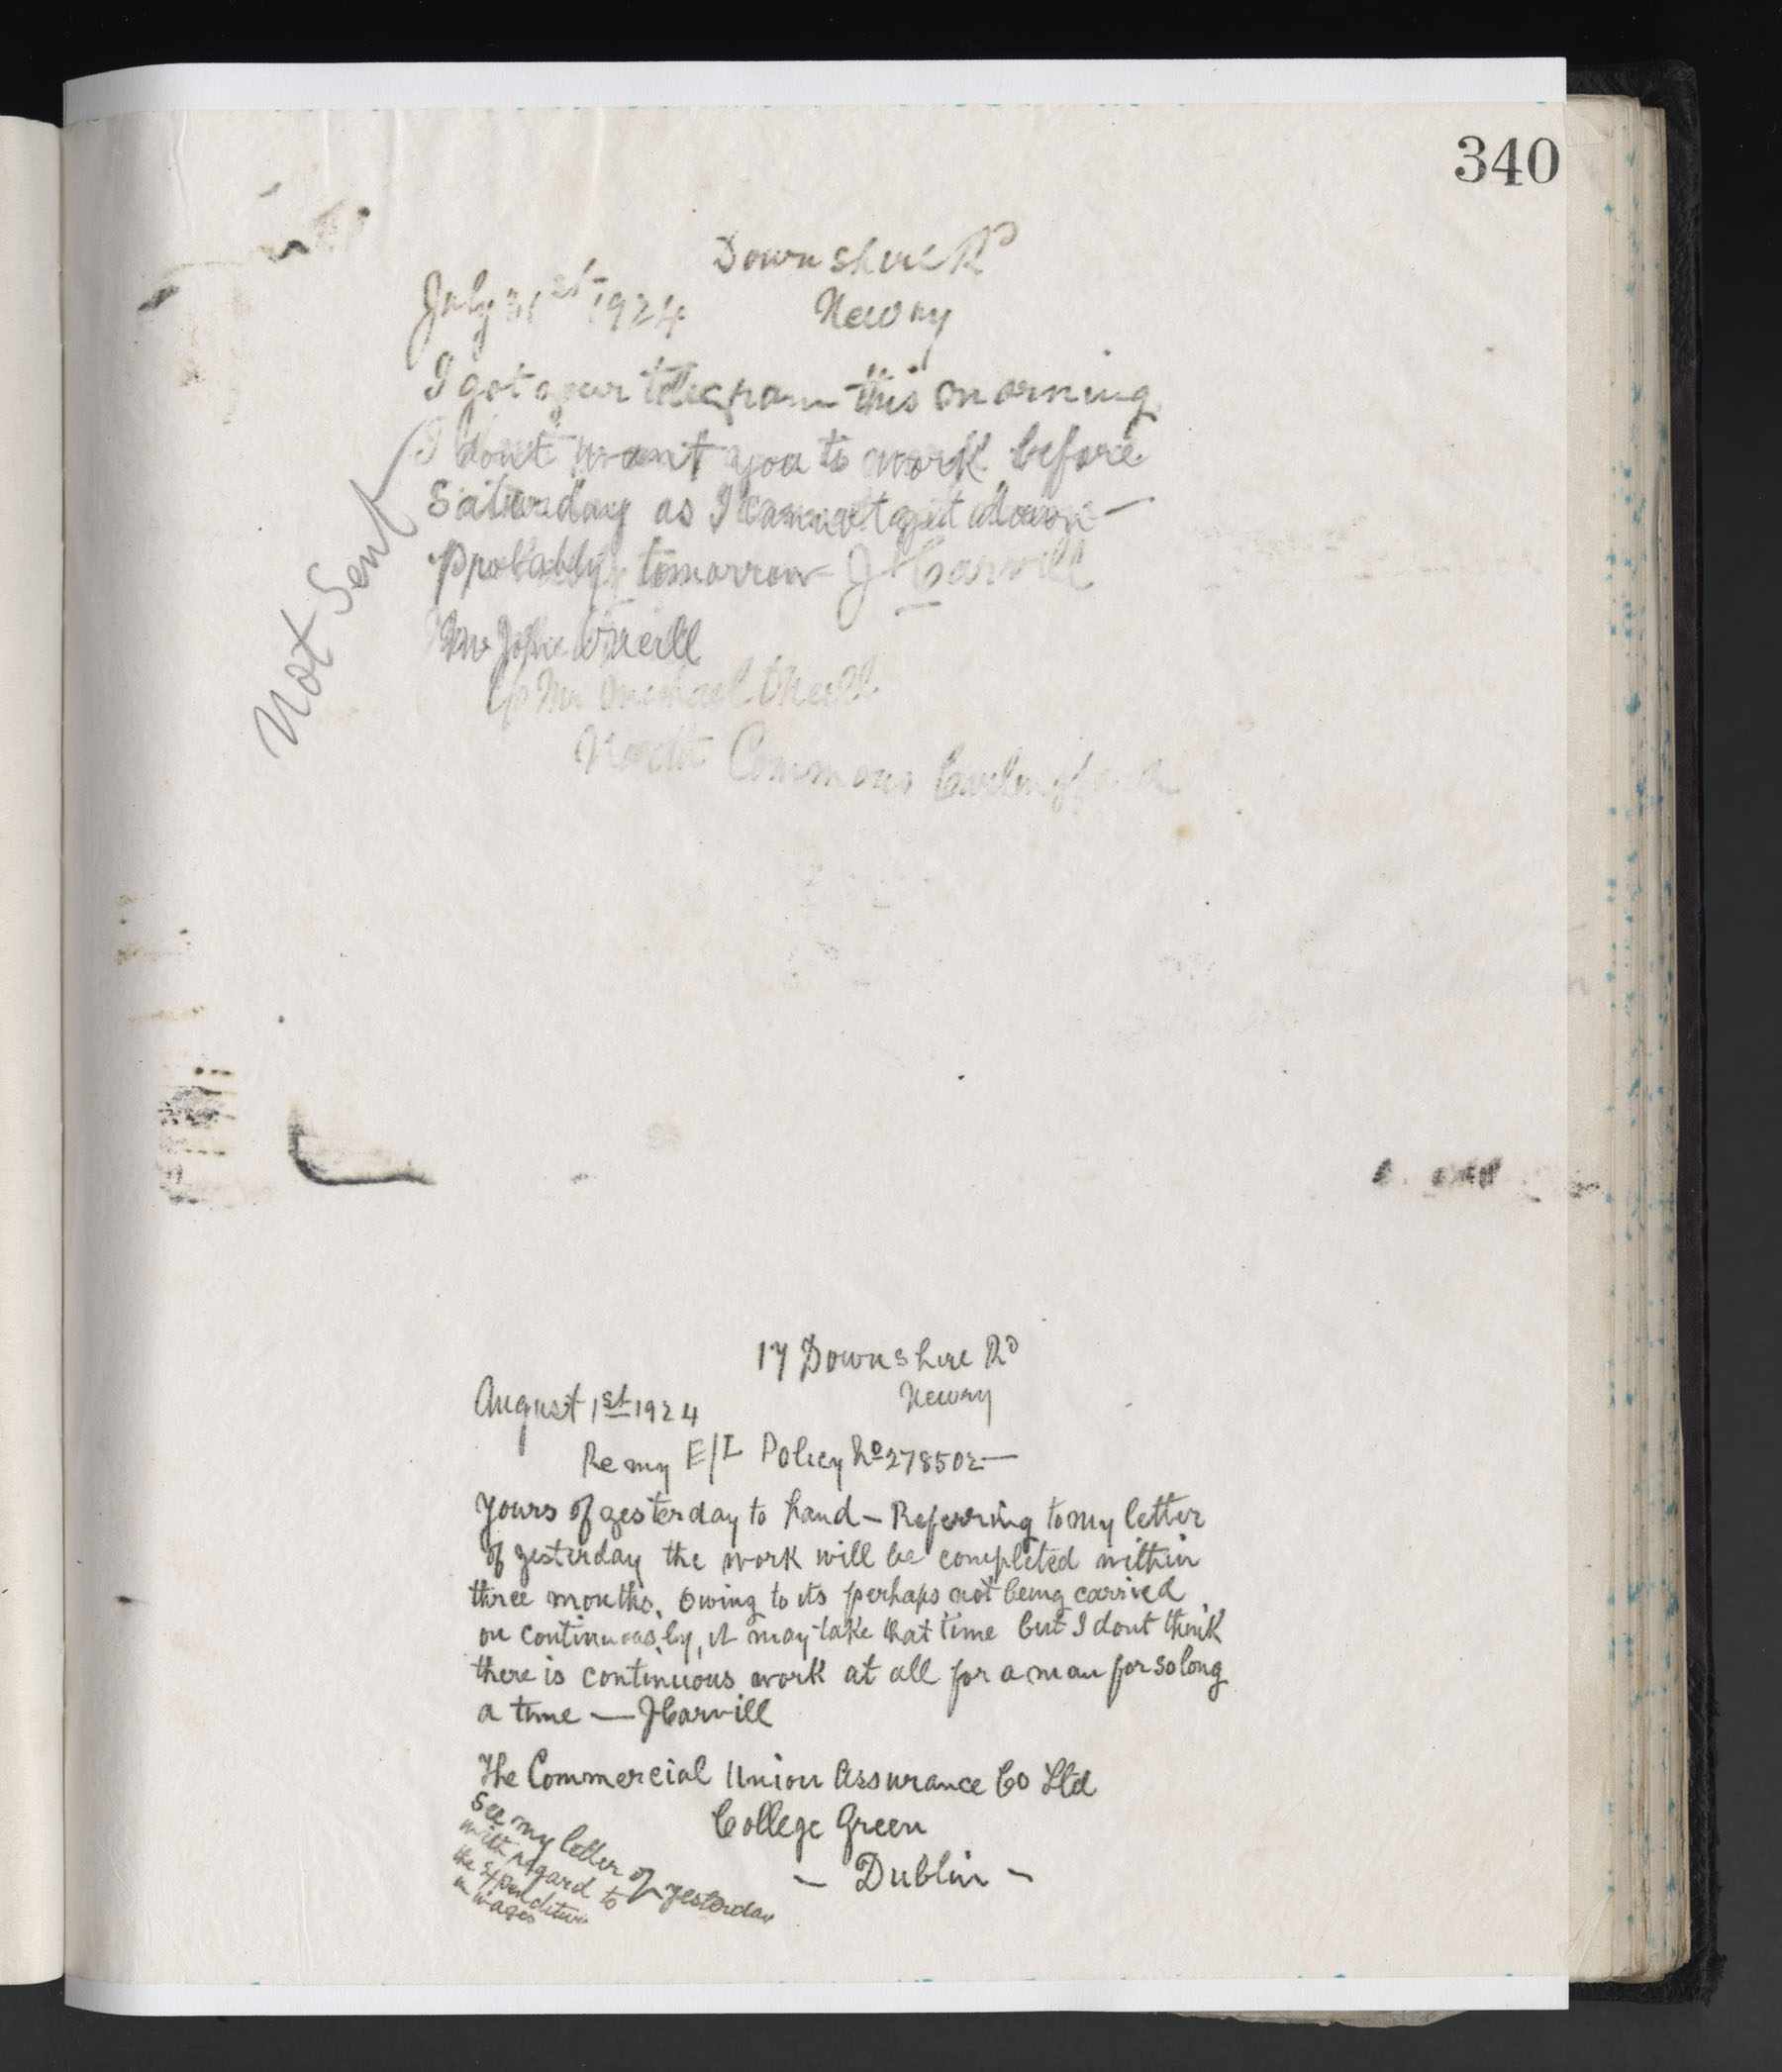 340
Downshire Rd
July 31st 1924 Newry
I got your telegram this morning
I dont want you to work before
Saturday as I cannot get down —
probably tomorrow — J Carvill
Not Sent
Mr John O'Neill
c/o Mr Michael O'Neill
North Commons Carlingford
17 Downshire Rd
Newry
August 1st 1924
Re my E/L Policy No 278502 —
Yours of yesterday to hand — Referring to my letter
of yesterday the work will be completed within
three months. Owing to its perhaps not being carried
on continuously, it may take that time but I dont think
there is continuous work at all for a man for so long
a time — J Carvill
The Commercial Union Assurance Co Ltd
College Green
— Dublin —
See my letter of yesterday
with regard to
the expenditure
in wages